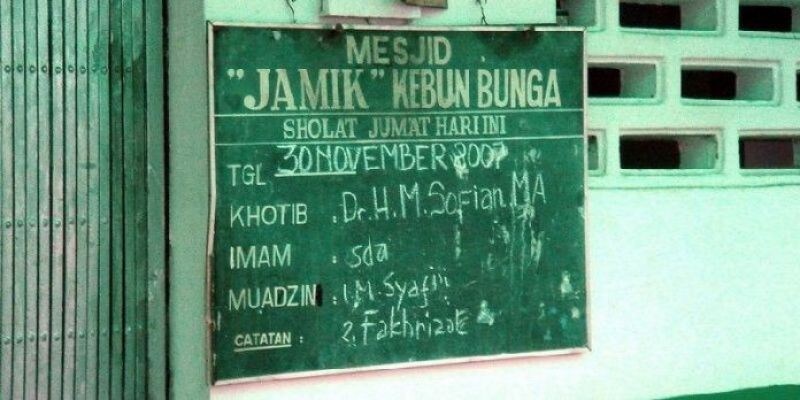 MESJID
"JAMIK" KEBUN BUNGA
SHOLAT JUMAT HARI INI
TGL 30 NOVEMBER 2007
KHOTIB : Dr. H. M. Sofian, MA
IMAM : sda
MUADZIN : 1. M. Syafii
CATATAN : 2. Fakhrizal